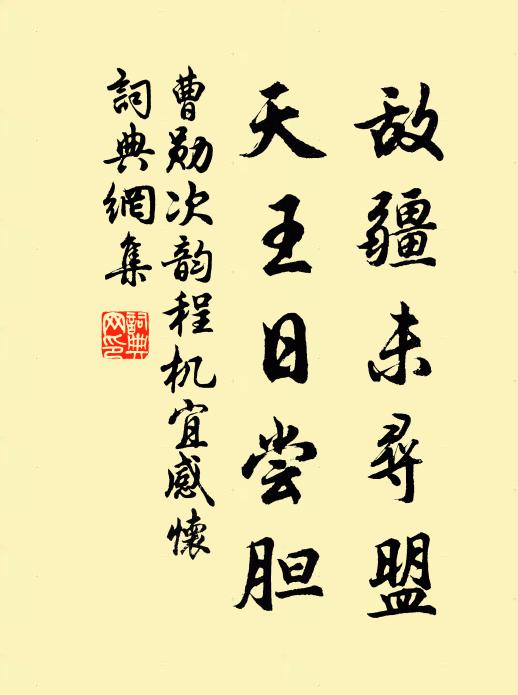 敌疆未尋盟
天王日尝胆
曹勋次韵程机宜感懷
詞典網集
詞典
网印